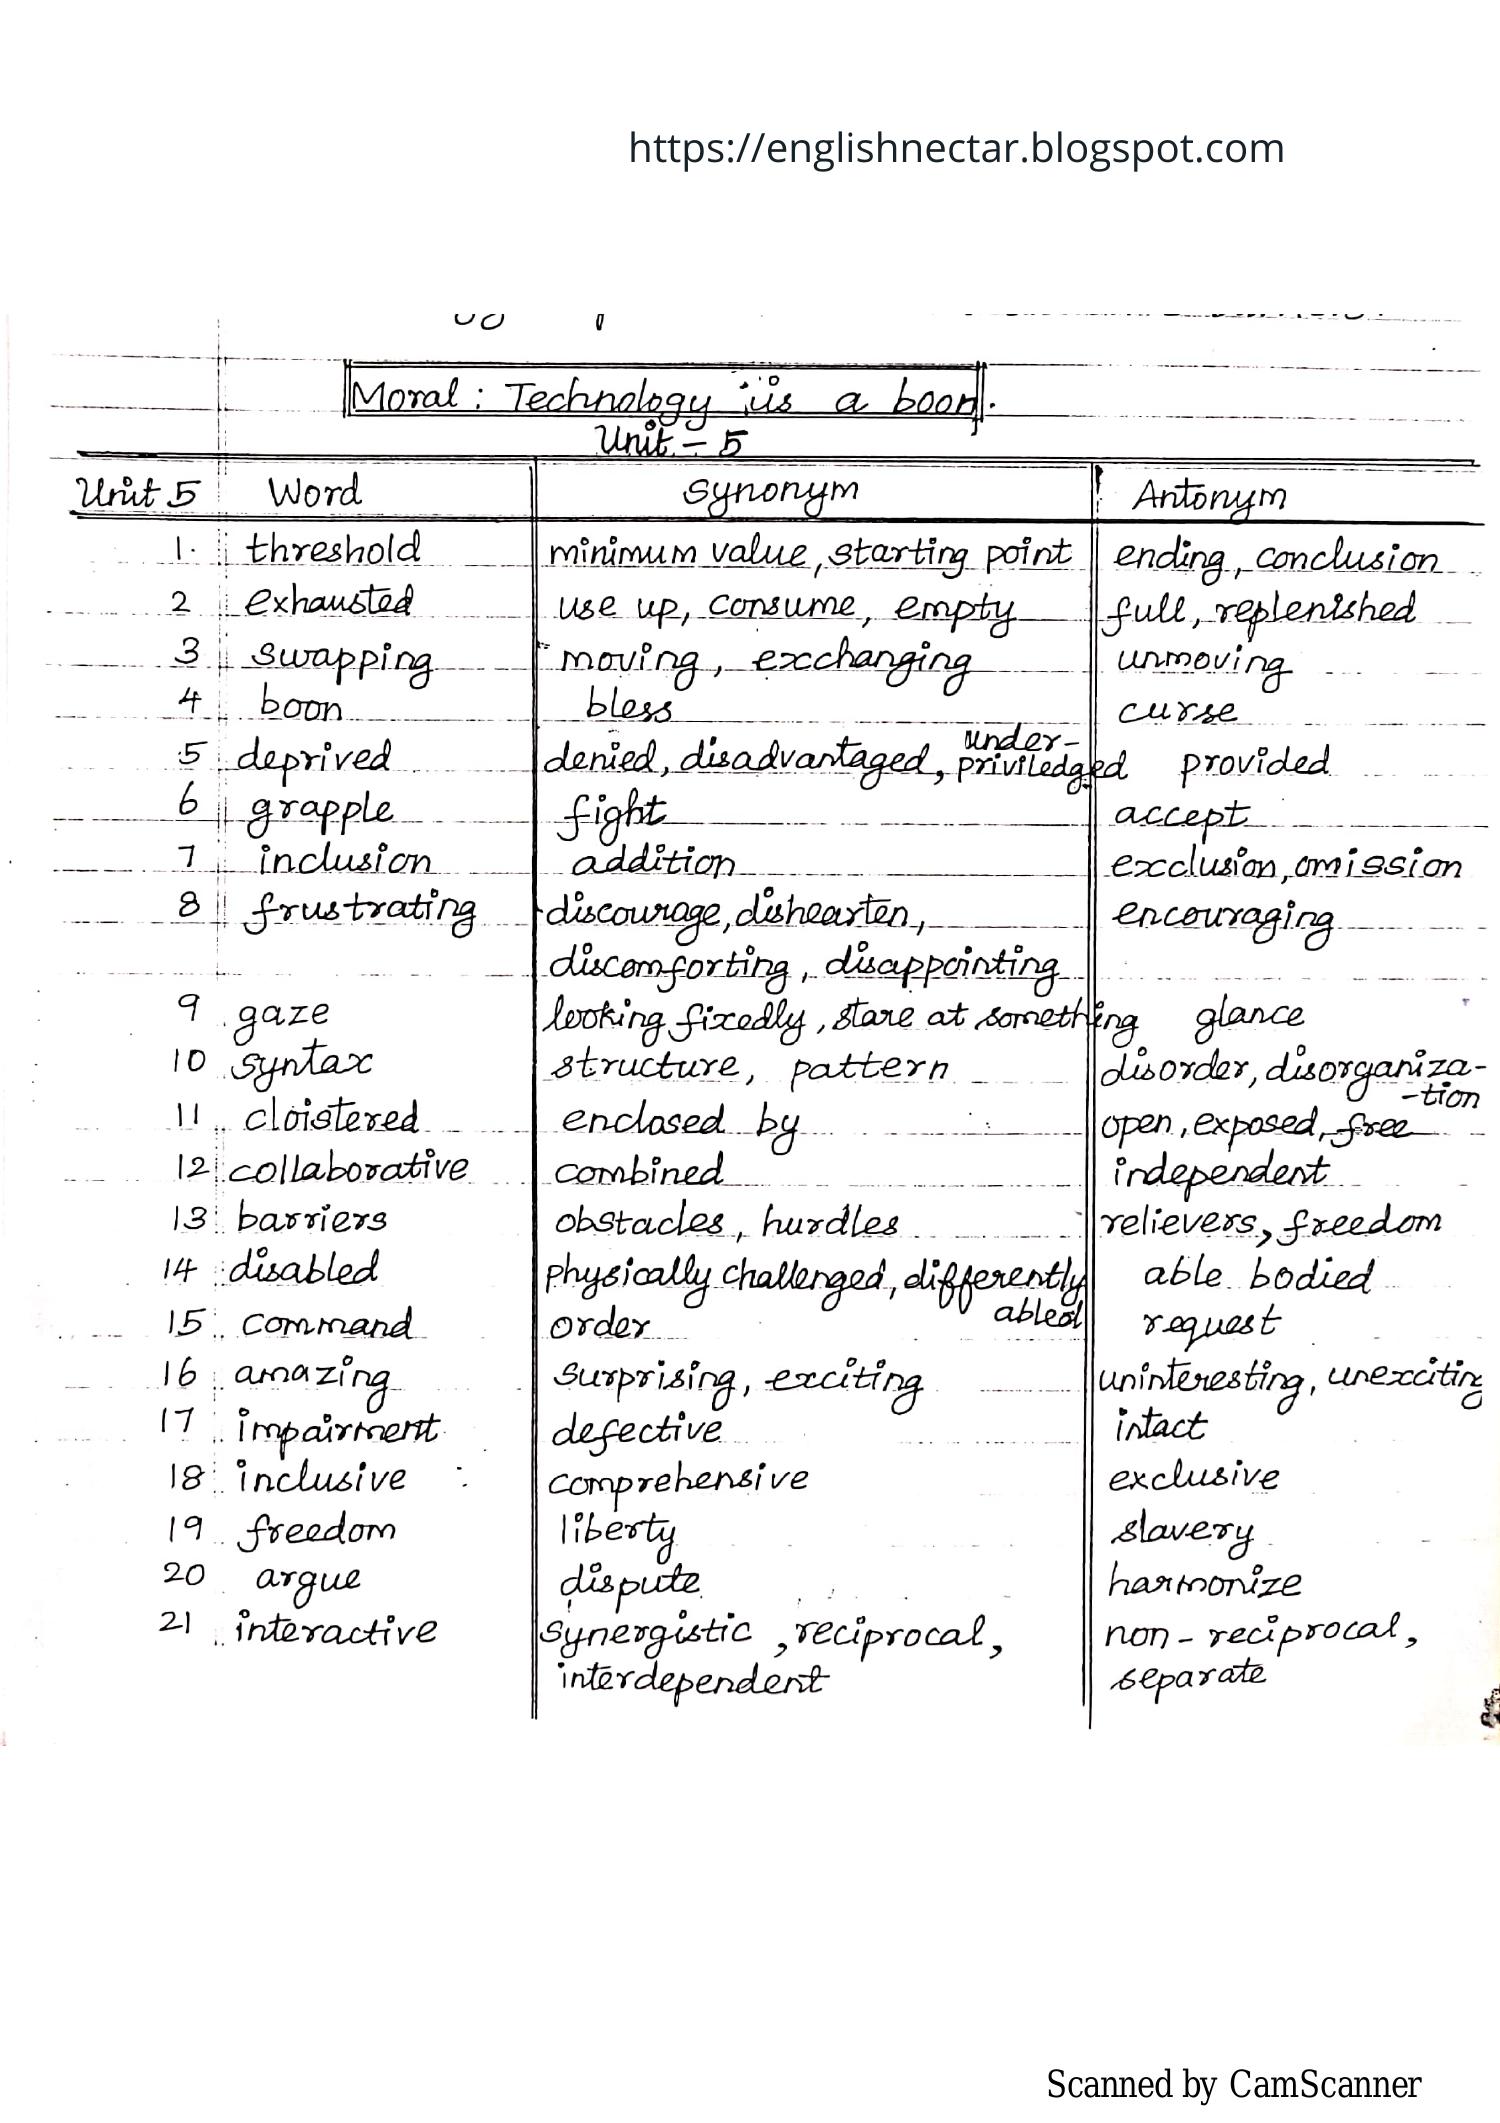 https://englishnectar.blogspot.com
Moral : Technology is a boon.
Unit - 5
Unit 5 Word Synonym Antonym
1. threshold minimum value, starting point ending, conclusion
2 exhausted use up, consume, empty full, replenished
3 swapping moving, excchanging unmoving
4 boon bless curse
5 deprived denied, disadvantaged, under-
priviledged provided
6 grapple fight accept
7 inclusion addition exclusion, omission
8 frustrating discourage, dishearten, encouraging
discomforting, disappointing
9 gaze looking fixedly, stare at something glance
10 syntax structure, pattern disorder, disorganiza-
-tion
11 cloistered enclosed by open, exposed, free
12 collaborative combined independent
13 barriers obstacles, hurdles relievers, freedom
14 disabled physically challenged, differently able bodied
abled
15 command order request
16 amazing surprising, exciting uninteresting, unexciting
17 impairment defective intact
18 inclusive comprehensive exclusive
19 freedom liberty slavery
20 argue dispute harmonize
21 interactive synergistic, reciprocal, non-reciprocal,
interdependent separate
Scanned by CamScanner